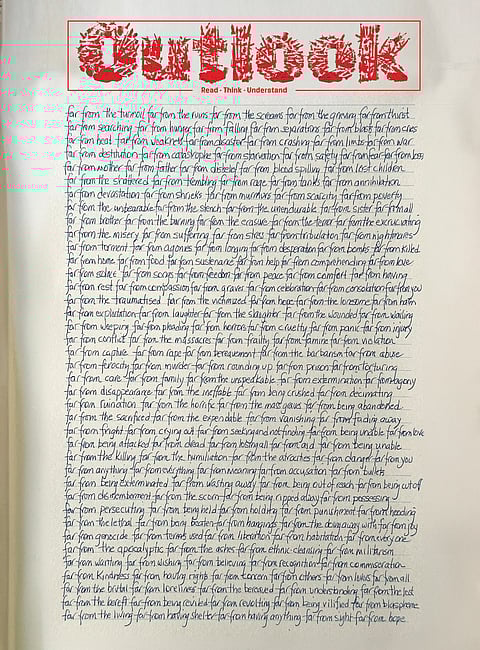 Outlook
Read · Think · Understand
far from the turmoil far from the ruins far from the screams far from the grieving far from thirst
far from searching far from hunger far from falling far from separations far from blasts far from cries
far from heat far from weakness far from disaster far from crashing far from limbs far from war
far from destitution far from catastrophe far from starvation far from safety far from fear far from loss
far from mother far from father far from disbelief far from blood spilling far from lost children
far from the shattered far from trembling far from rage far from tanks far from annihilation
far from devastation far from shrieks far from murmurs far from scarcity far from poverty
far from the unbearable far from the stench far from the unendurable far from sister far from all
far from brother far from the burning far from the erasure far from the terror far from the excruciating
far from the misery far from suffering far from stress far from tribulation far from nightmares
far from torment far from agonies far from longing far from desperation far from bombs far from killed
far from home far from food far from sustenance far from help far from comprehending far from love
far from solace far from songs far from freedom far from peace far from comfort far from having
far from rest far from compassion far from graves far from celebration far from consolation far from you
far from the traumatised far from the victimized far from hope far from the lonesome far from harm
far from exploitation far from laughter far from the slaughter far from the wounded far from wailing
far from weeping far from pleading far from horrors far from cruelty far from panic far from injury
far from conflict far from the massacres far from frailty far from famine far from violation
far from capture far from rape far from bereavement far from the barbarism far from abuse
far from ferocity far from murder far from rounding up far from prison far from torturing
far from care far from family far from the unspeakable far from extermination far from agony
far from disappearance far from the ineffable far from being crushed far from decimating
far from ruination far from the horrific far from the mass graves far from being abandoned
far from the sacrificed far from the expendable far from vanishing far from fading away
far from fright far from crying out far from seeking and not finding far from being unable far from love
far from being attacked far from dead far from losing all far from aid far from being unable
far from the killing far from the humiliation far from the atrocities far from danger far from you
far from anything far from everything far from meaning far from accusation far from bullets
far from being exterminated far from wasting away far from being out of reach far from being out of
far from dismemberment far from the scorn far from being ripped away far from possessing
far from persecuting far from being held far from holding far from punishment far from heeding
far from the lethal far from being beaten far from hangings far from the doing away with far from joy
far from genocide far from terms used far from liberation far from habitation far from every one
far from the apocalyptic far from the ashes far from ethnic cleansing far from militarism
far from wanting far from wishing far from believing far from recognition far from commiseration
far from kindness far from having rights far from concern far from others far from lulls far from all
far from the brutal far from loneliness far from the bereaved far from understanding far from the lost
far from the bereft far from being reviled far from revolting far from being vilified far from blaspheme
far from the living far from having shelter far from having anything far from sight far from hope